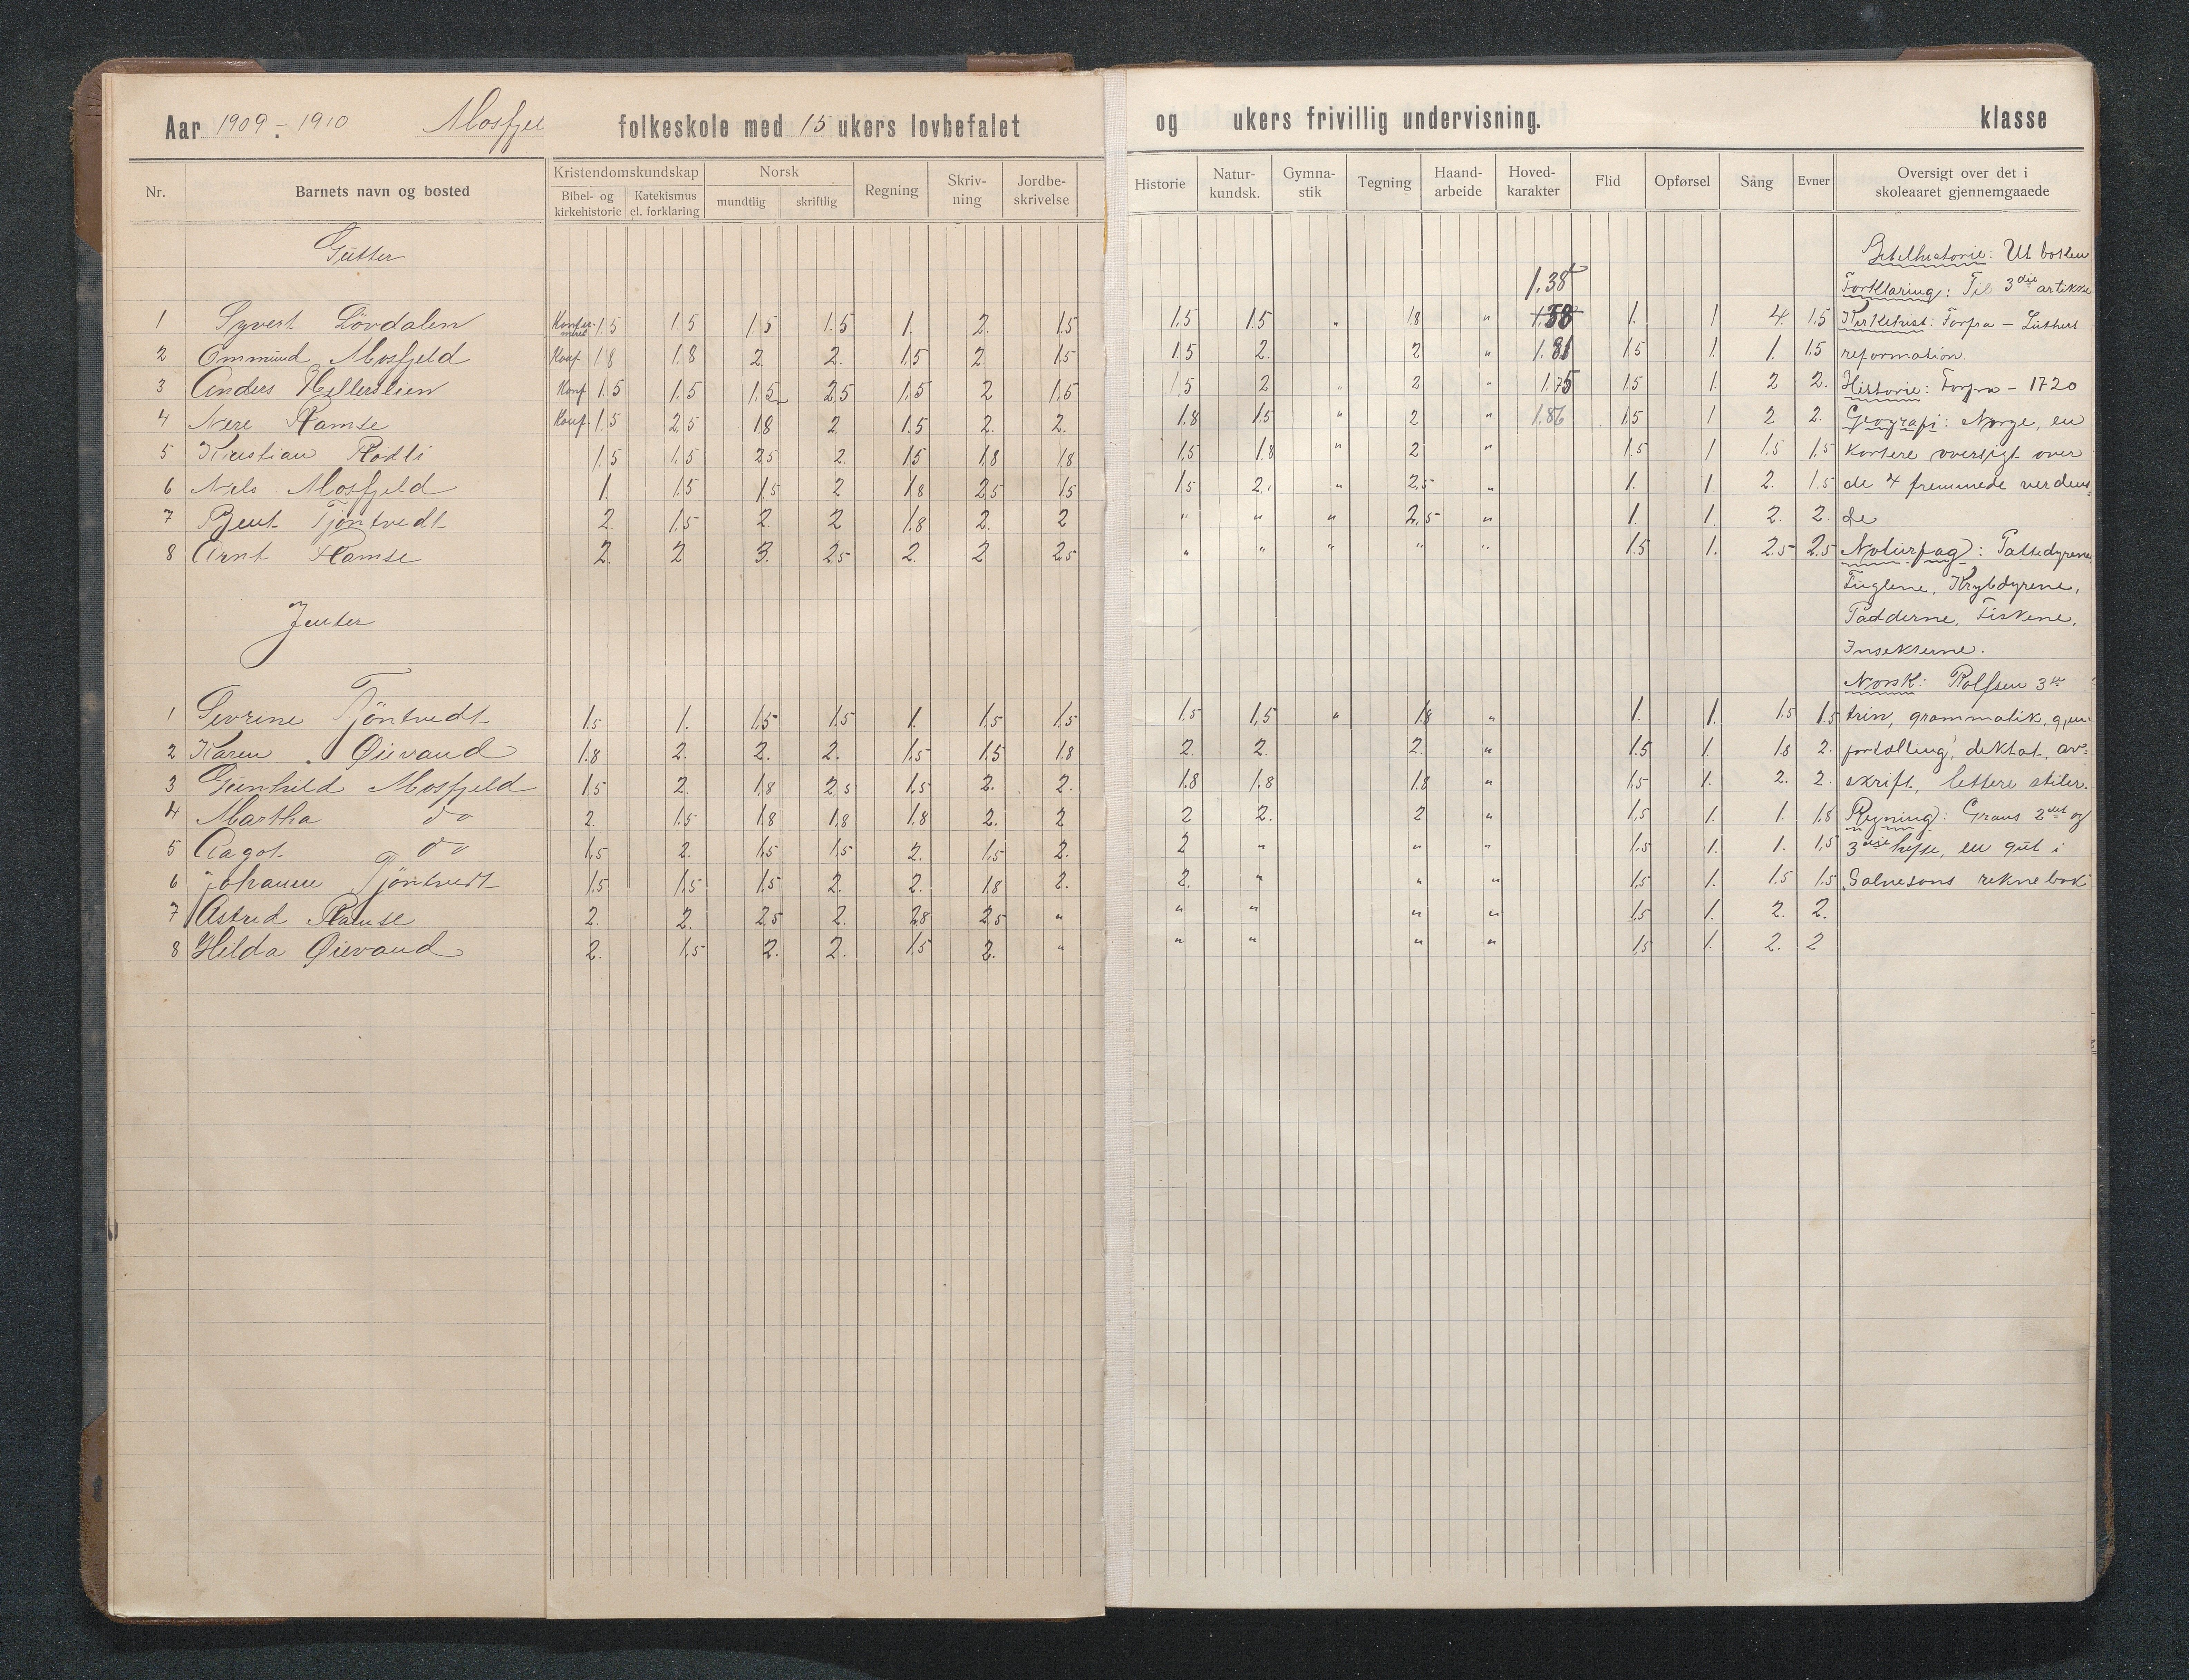 Aar 1909 - 1910 Mosfjel folkeskole med 15 ukers lovbefalet og ukers frivillig undervisning. klasse
Nr. Barnets navn og bosted Kristendomskundskap Bibel- og kirkehistorie Katekismus el. forklaring Norsk mundtlig skriftlig Regning Skriv-ning Jordbe-skrivelse Historie Natur-kundsk. Gymna-stik Tegning Haand-arbeide Hoved-karakter Flid Opførsel Sang Evner Oversigt over det i skoleaaret gjennemgaaede
Gutter
1.38
1 Syvert Lövdalen Konfir-meret 1.5 1.5 1.5 1.5 1. 2. 1.5 1.5 1.5 " 1.8 " 1.58 1. 1 4. 1.5
2 Ommund Mosfjeld Konf 1.8 1.8 2. 2. 1.5 2. 1.5 1.5 2. 2 " 1.81 1.5 1. 1. 1.5
3 Anders Hellerslien Konf 1.5 1.5 1.5 2.5 1.5 2 1.5 1.5 2 " 2 " 1.75 1.5 1. 2 2.
4 Nere Ramse Konf. 1.5 2.5 1.8 2 1.5 2. 2. 1.8 1.5 " 2 " 1.86 1.5 1 2 2.
5 Kristian Rodli 1.5 1.5 2.5 2. 1.5 1.8 1.8 1.5 1.8 " 2 " 1.5 1 1.5 1.5
6 Nils Mosfjeld 1. 1.5 1.5 2 1.8 2.5 1.5 1.5 2. " 2.5 " 1. 1. 2. 1.5
7 Bent Tjöntvedt 2. 1.5 2. 2 1.8 2. 2 " " " 2.5 " 1. 1. 2. 2.
8 Arnt Ramse 2. 2 3. 2.5 2. 2 2.5 " " " " " 1.5 1. 2.5 2.5
Jenter
1 Sevrine Tjöntvedt 1.5 1. 1.5 1.5 1. 1.5 1.5 1.5 1.5 " 1.8 " 1. 1. 1.5 1.5
2 Karen Øievand 1.8 2. 2. 2. 1.5 1.5 1.8 2. 2. 2. " 1.5 1. 1.8 2.
3 Gunhild Mosfjeld 1.5 2. 1.8 2.5 1.5 2. 2. 1.8 1.8 1.8 " 1.5 1. 2. 2.
4 Martha do 2. 1.5 1.8 1.8 1.8 2. 2 2 2. 2 " 1.5 1. 1. 1.8
5 Aagot do 1.5 2. 1.5 1.5 2. 1.5 2. 2 " " " 1.5 1. 1. 1.5
6 Johanne Tjöntvedt 1.5 1.5 1.5 2. 2. 1.8 2. 2. " " " 1.5 1. 1.5 1.5
7 Astrid Ramse 2. 2. 2.5 2. 2.8 2.5 " " " " " 1.5 1. 2. 2.
8 Hilda Øievand 2. 1.5 2. 2. 1.5 2. " " " " " 1.5 1. 2. 2
Bibelhistorie: Ut boken
Forklaring: Til 3die artikke
Kirkehist: Forfra - Luthers
reformation.
Historie: Forfra - 1720
Geografi: Norge, en
kortere oversigt over
de 4 fremmede verdens=
de
Naturfag: Pattedyrene,
Fuglene, Krybdyrene,
Padderne, Fiskene,
Insekterne.
Norsk: Rolfsen 3die
trin, grammatik, gjen-
fortelling, diktat, av=
skrift, lettere stiler.
Regning: Graus 2det og
3die hefte, en gut i
reknebok